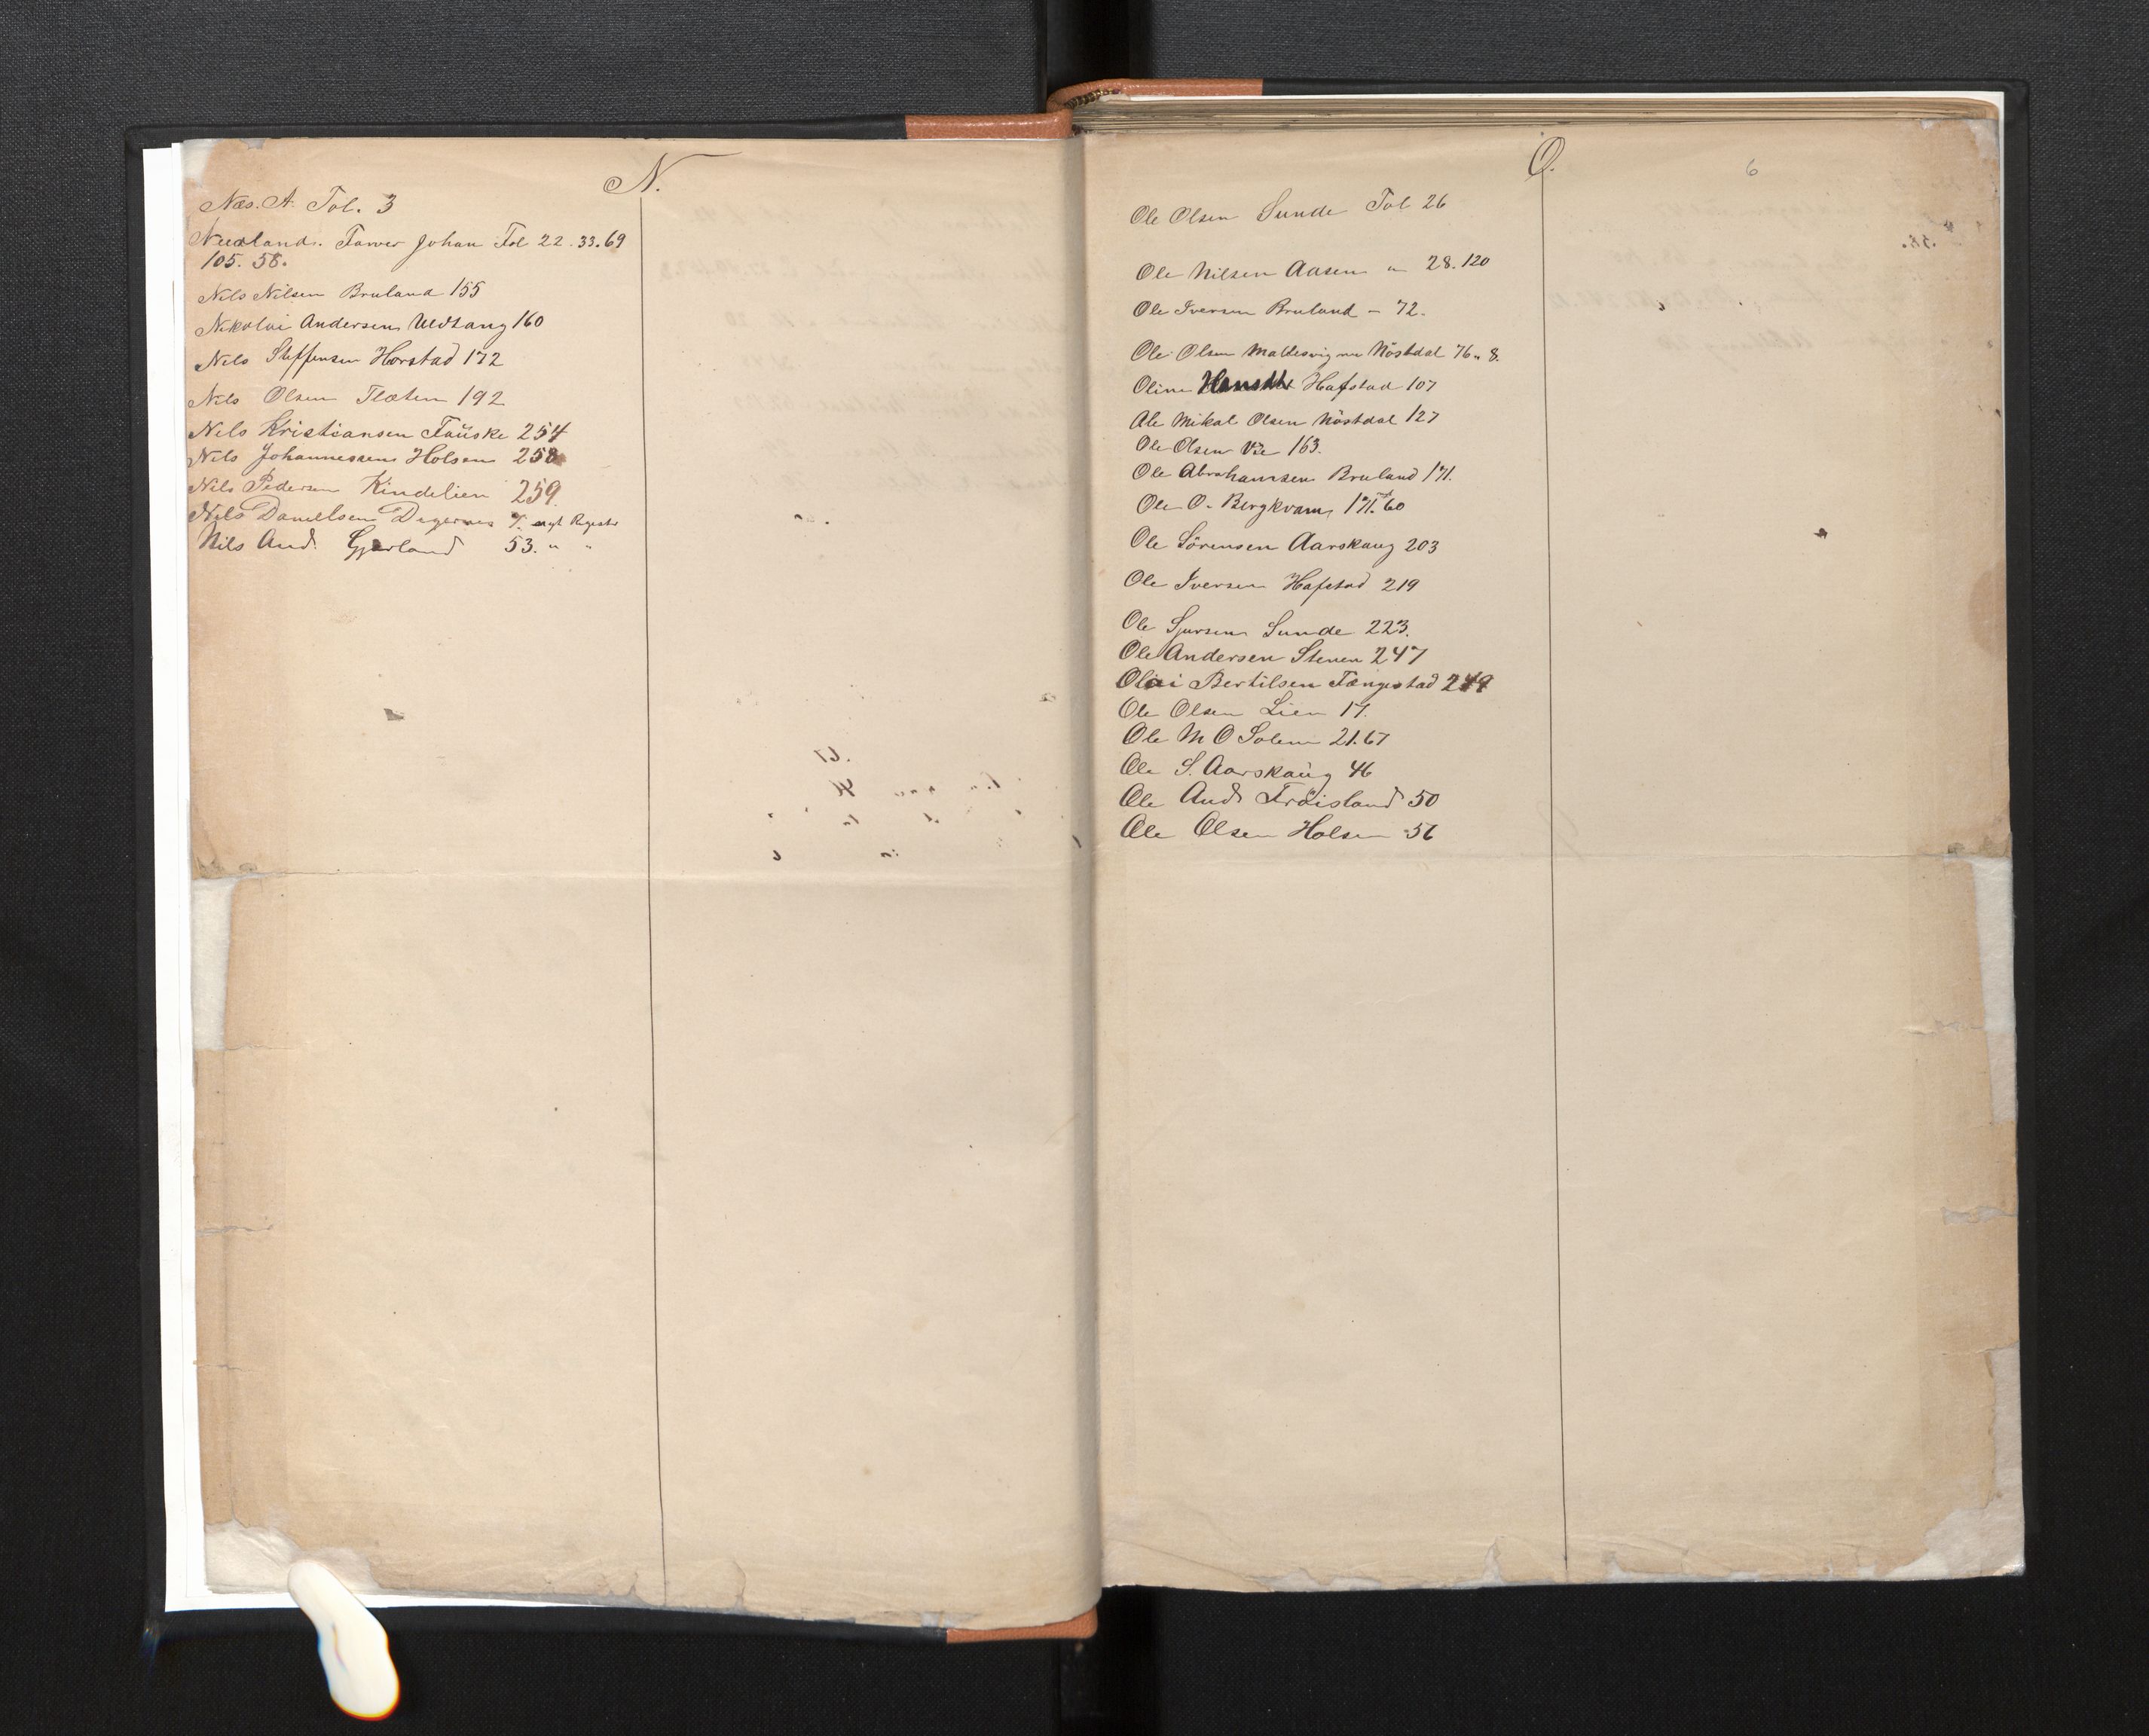 N.
Næs. A. Fol. 3
Nedland. Farver Johan Fol 22. 33. 69
105. 58.
Nils Nilsen Bruland 155
Nikolai Andersen Uldtang 160
Nils Steffensen Horstad 172
Nils Olsen Flæten 192
Nils Kristiansen Fauske 254
Nils Johannessen Holsen 258
Nils Pedersen Kindelien 259
Nils Daniellsen Degernes 7. nyt Regester
Nils And. Gjerland 53. " "
O.
6
Ole Olsen Sunde Fol 26
Ole Nilsen Aasen " 28. 120
Ole Iversen Bruland - 72.
Ole Olsen Nöstdal 76 " 8.
Oline Hafstad 107
Ole Mikal Olsen Nöstdal 127
Ole Olsen Vie 163.
Ole Abrahamsen Bruland 171.
Ole O. Bergkvam 171. 60
Ole Sörensen Aarskaug 203
Ole Iversen Hafstad 219
Ole Sjursen Sunde 223.
Ole Andersen Stenen 247
Olai Bertilsen Fængestad 249
Ole Olsen Lien 17.
Ole M O Solem 21. 67
Ole S. Aarskaug 46
Ole And. Fröisland 50
Ole Olsen Holsen 56